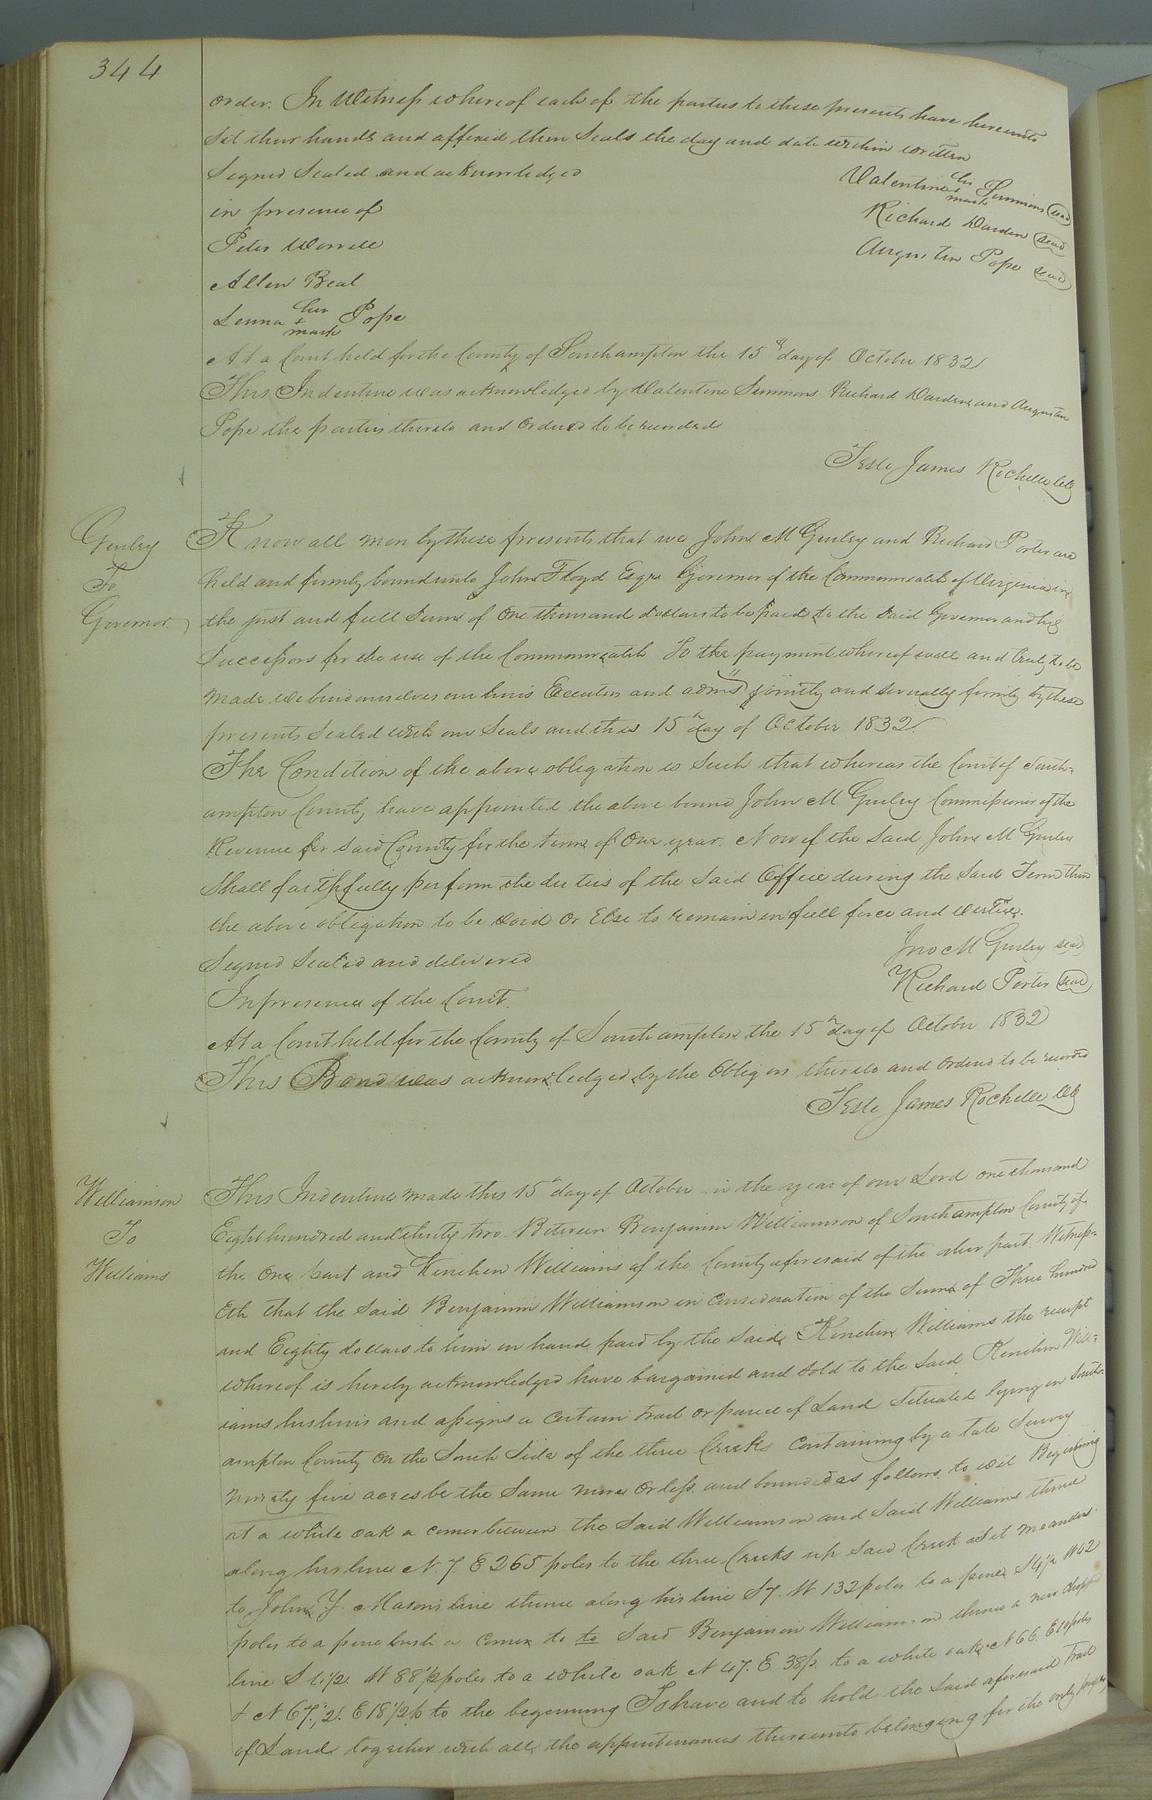 344
order. In Witness whereof each of the parties to these presents have hereunto
Set their hands and affixed their Seals the day and date within written
Signed Sealed and acknowledged
in presence of
Peter Worrell
Allen Beal
Lenna her + mark Pope
Valentine his + mark Simmons seal
Richard Darden seal
Augustin Pope seal
At a Court held for the County of Southampton the 15th day of October 1832
This Indenture was acknowledged by Valentine Simmons Richard Darden and Augustin
Pope the parties thereto and Ordered to be recorded
Teste James Rochelle Clk
Gurley
To
Governor
Know all men by these presents that we John M Gurley and Richard Porter are
held and firmly bound unto John Floyd Esqr Governor of the Commonwealth of Virginia in
the just and full Sum of One thousand dollars to be paid to the said Governor and his
Successors for the use of the Commonwealth To the payment whereof well and truly to be
made we bind ourselves our heirs Executors and adms jointly and severally firmly by these
presents Sealed with our Seals and this 15th day of October 1832
The Condition of the above obligation is Such that whereas the Court of South-
ampton County have appointed the above bound John M Gurley Commissioner of the
Revenue for said County for the term of One year. Now if the Said John M Gurley
Shall faithfully perform the duties of the Said Office during the Said Term then
the above obligation to be void or Else to remain in full force and virtue.
Signed Sealed and delivered
In presence of the Court.
Jno M Gurley seal
Richard Porter seal
At a Court held for the County of Southampton the 15th day of October 1832
This Bond was acknowledged by the Obligors thereto and Ordered to be recorded
Teste James Rochelle Clk
Williamson
To
Williams
This Indenture made this 15th day of October in the year of our Lord one thousand
Eight hundred and thirty two Between Benjamin Williamson of Southampton County of
the One part and Kinchen Williams of the County aforesaid of the other part. Witness-
Eth that the Said Benjamin Williamson in Consideration of the Sum of Three hundred
and Eighty dollars to him in hand paid by the Said Kinchen Williams the receipt
whereof is hereby acknowledged have bargained and Sold to the Said Kinchen Will-
iams his heirs and assigns a Certain tract or parcel of Land Situated lying in South-
ampton County On the South Side of the three Creeks Containing by a late Survey
ninety five acres be the Same more or less and bounded as follows, to wit Beginning
at a white oak a corner between the Said Williamson and Said Williams thence
along his line N. 7. E 265 poles to the three Creeks up Said Creek as it meanders
to John Y. Mason's line thence along his line S 7. W 132 poles to a pine S 4 1/2 W 42
poles to a pine bush a corner to to Said Benjamin Williamson thence a new chopt
line S 4 1/2 W 88 1/2 poles to a white oak N 47. E 38 p. to a white oak N 66. E 10 poles
& N 67. 1/2. E 18 1/2 p to the beginning To have and to hold the Said aforesaid Tract
of Land together with all the appurtenances thereunto belonging for the only proper